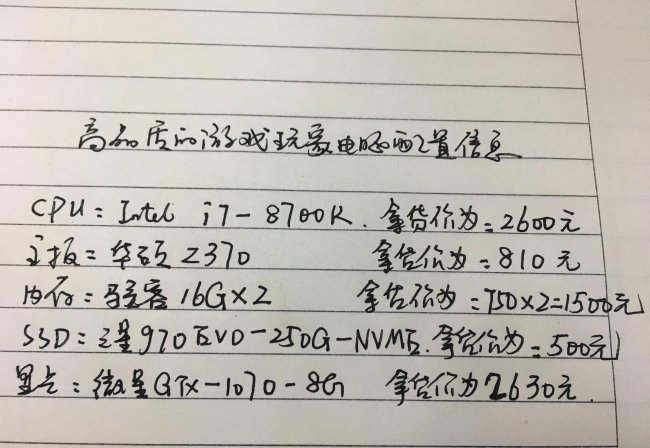 高品质的游戏玩家电脑配置信息
CPU：Intel i7-8700K. 拿货价为：2600元
主板：华硕Z370 拿货价为：810元
内存：骇客16G×2 拿货价为：750×2=1500元
SSD：三星970EVO-250G-NVME. 拿货价为：500元
显卡：微星GTX-1070-8G 拿货价为2630元.